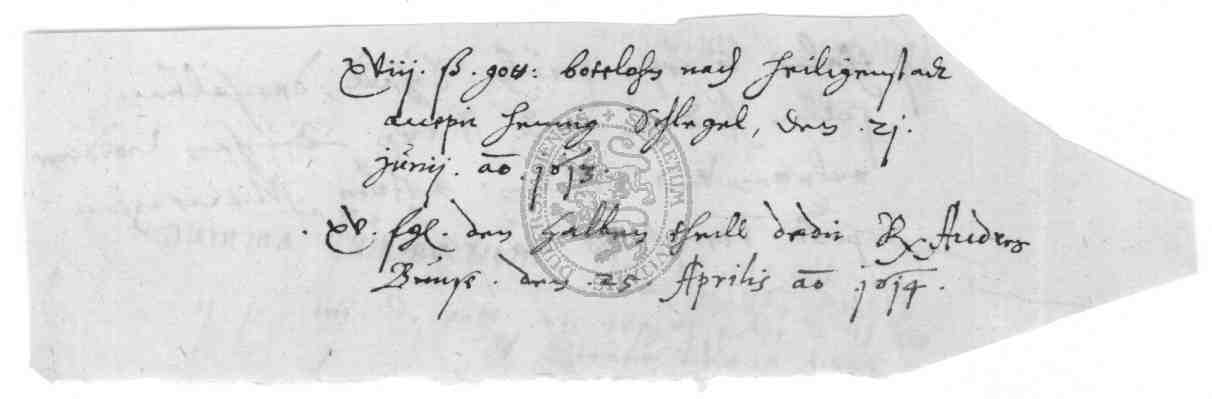 xviij. ß. gott: botelohn nach Heiligenstadt
accepit Henning Schlegel, den .21.
Junij. ao. 1613.
xv. fgl. den halben theill dedit Rx Andres
den .25. Aprilis ao 1614.